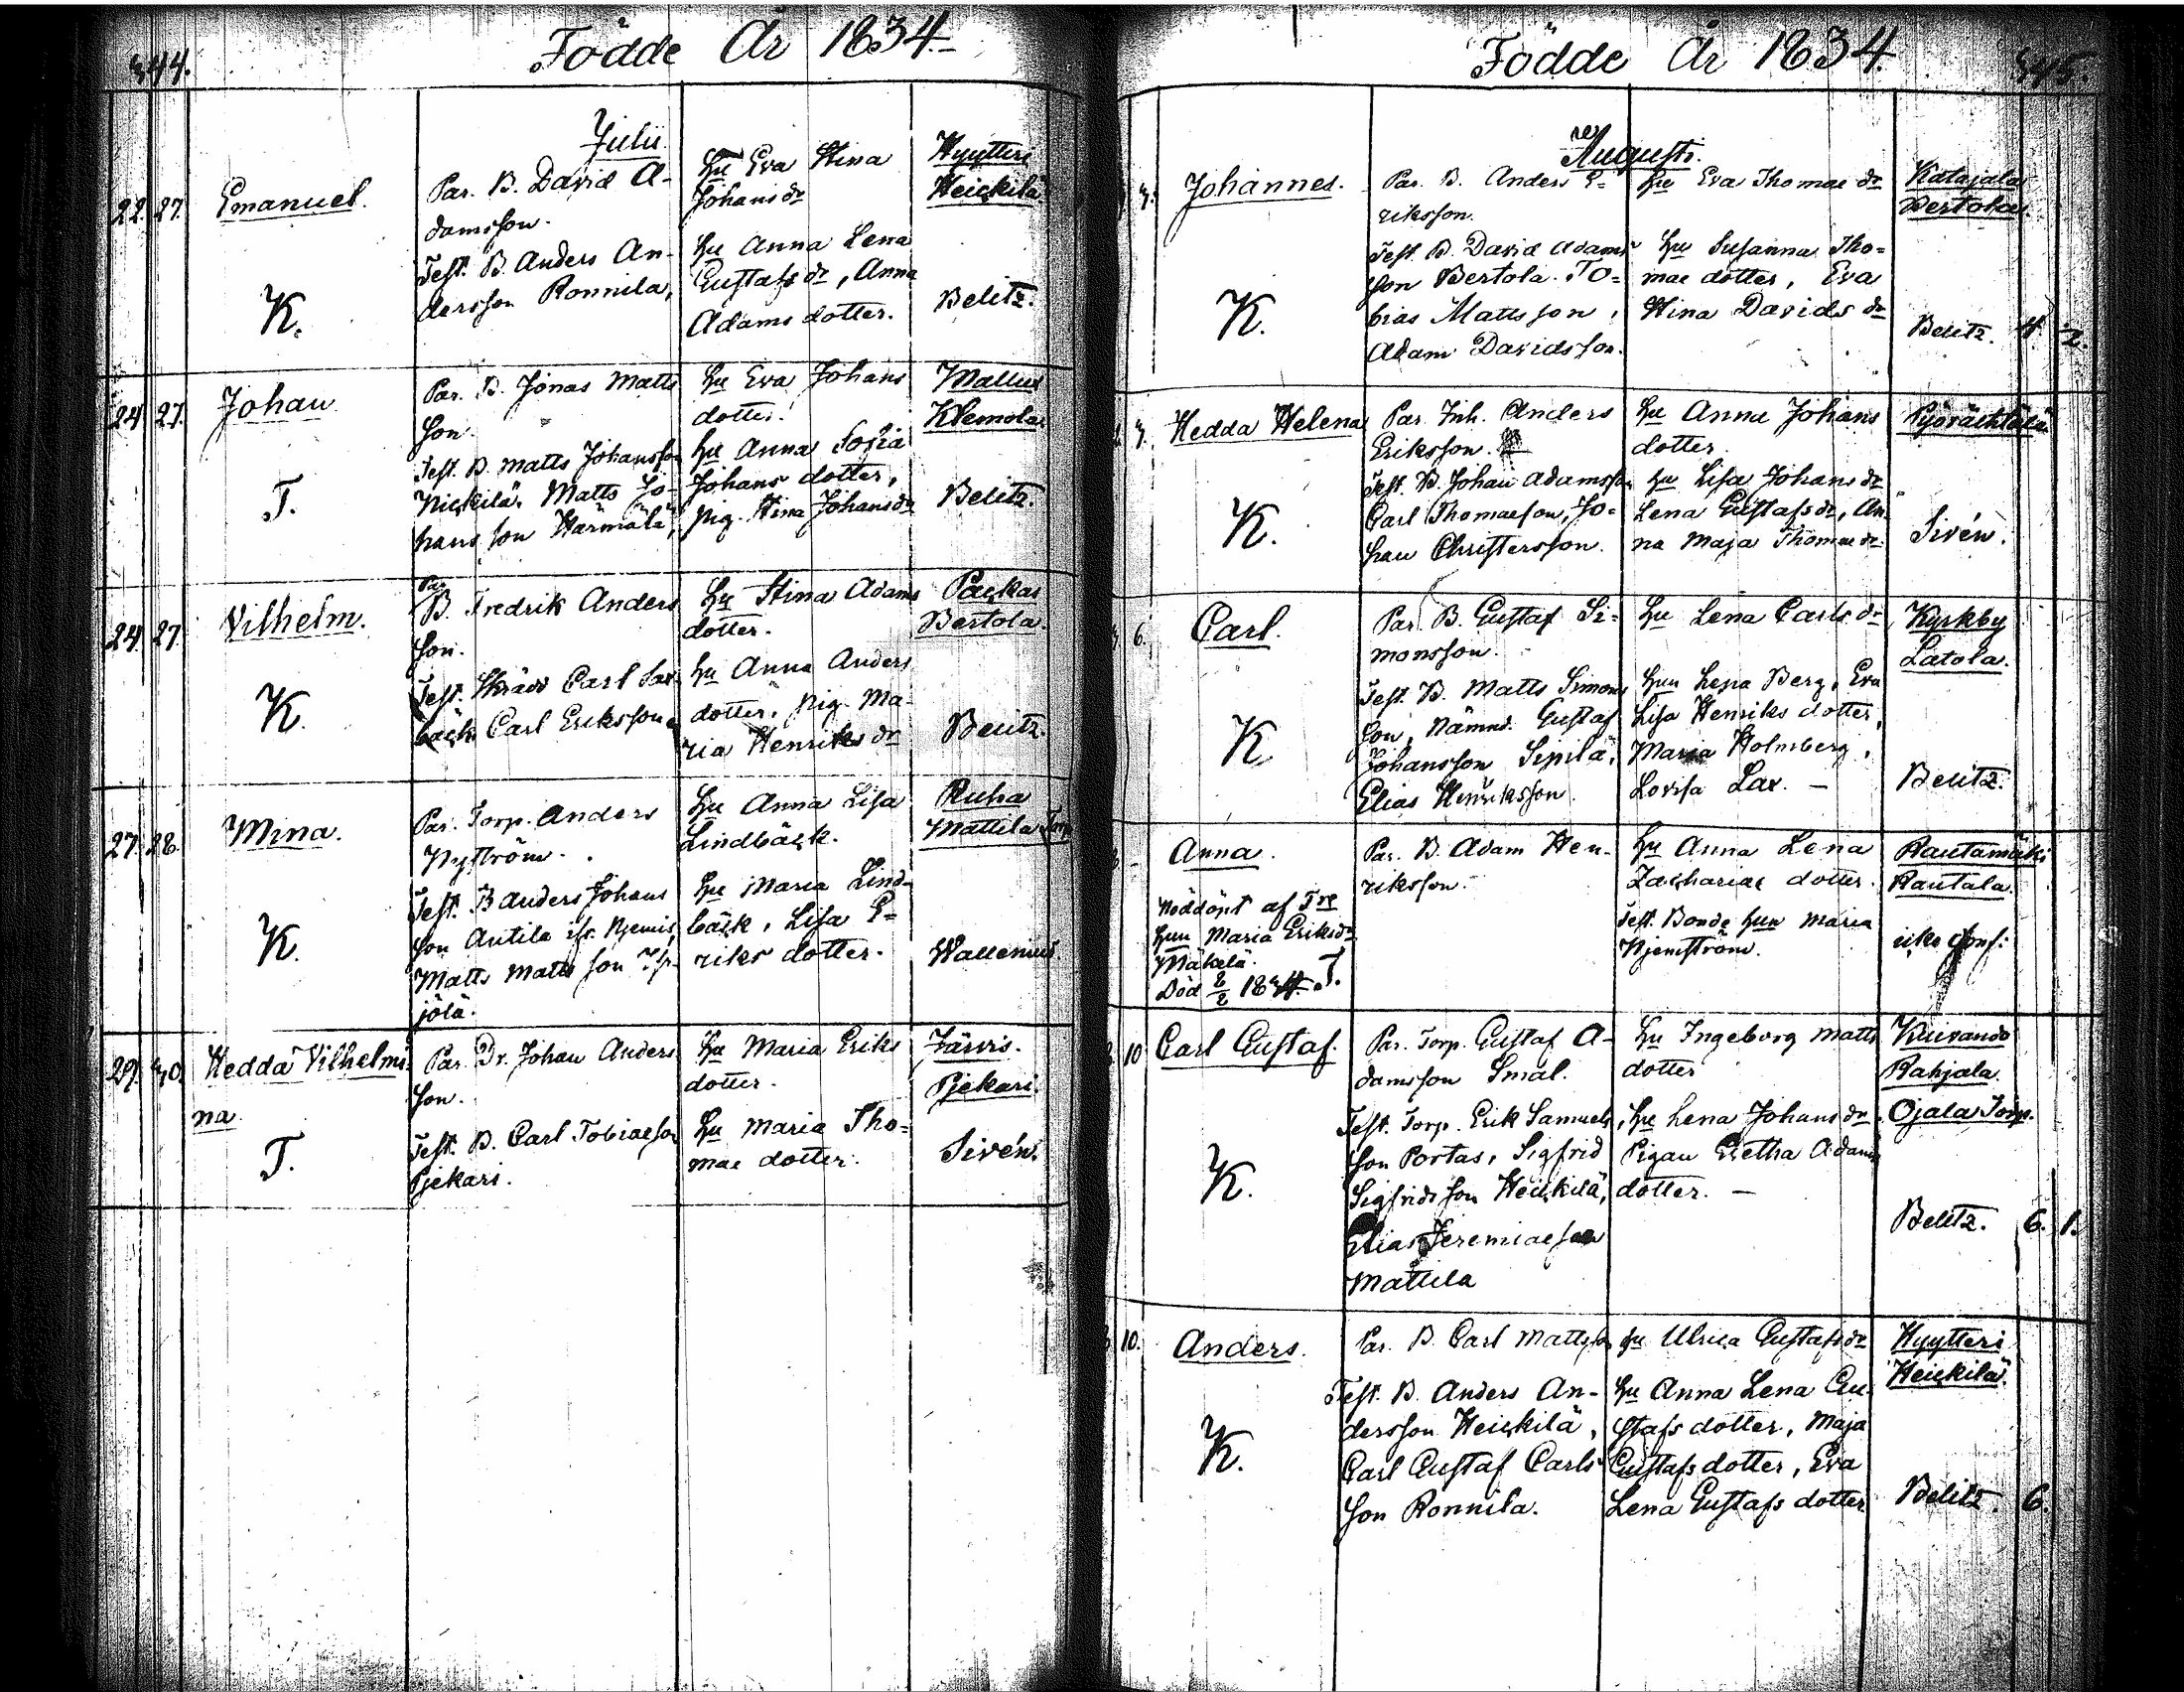 344.
Födde År 1834.
Julii.
22. 27. Emanuel.
K.
Par. B. David A-
damsson.
Test. B. Anders An-
dersson Ronnila,
Hu Eva Stina
Johans dr
Hu Anna Lena
Gustafs dr, Anna
Adams dotter.
Hyytteri
Heickilä
Belitz.
24 27. Johan
T.
Par. B. Jonas Matts
son.
Test. B. Matts Johansson
Nickilä, Matts Jo-
hansson Härmälä,
Hu Eva Johans
dotter.
Hu Anna Sofia
Johans dotter,
pig. Stina Johans dr
Mallus
Klemola
Belitz.
24. 27. Vilhelm.
K.
Par.
B. Fredrik Anders
son.
Test. Skrädd Carl Sax-
bäck Carl Eriksson
Hu Stina Adams
dotter.
Hu Anna Anders
dotter, pig. Ma-
ria Henriks dr
Packas
Bertola.
Belitz.
27. 28. Mina.
K.
Par. Torp. Anders
Nyström.
Test. B Anders Johans
son Antila
Matts Mattsson
jölä.
Hu Anna Lisa
Lindbäck.
Hu Maria Lind-
bäck, Lisa E-
riks dotter.
Ruha
Mattila Torp
Wallenius
29. 30. Hedda Vilhelmi-
na
T.
Par. Dr. Johan Anders
son.
Test. B. Carl Tobiaeson
Pjekari.
Hu Maria Eriks
dotter.
Hu Maria Tho-
mae dotter.
Järvis.
Pjekari.
Sirén.
345.
Födde År 1834.
Augusti.
3. Johannes.
K.
Par. B. Anders E-
riksson.
Test. B. David Adams
son Bertola. To-
bias Mattsson,
Adam Davidsson.
Hu Eva Thomae dr
Hu Susanna Tho-
mae dotter, Eva
Stina Davids dr
Katajala
Bertola.
Belitz. 4. 2.
3. Hedda Helena
K.
Par. Inh. Anders
Eriksson.
Test. B. Johan Adamsson
Carl Thomaeson, Jo-
han Christersson.
Hu Anna Johans
dotter.
Hu Lisa Johans dr
Lena Gustafs dr, An-
na Maja Thomae dr
Sirén.
6. Carl.
K
Par. B. Gustaf Si-
monsson.
Test. B. Matts Simons
son, Nämnd. Gustaf
Johansson Sipilä,
Elias Henriksson.
Hu Lena Carls dr
Hun Lena Berg, Eva
Lisa Henriks dotter,
Maria Holmberg,
Lovisa Lax. -
Kyrkby
Latola.
Belitz.
Anna.
Nöddöpt af
Hun Maria Eriks dr
Mäkelä.
Död 1834. T.
Par. B. Adam Hen-
riksson.
Hu Anna Lena
Zachariae dotter.
Test. Bonde Hun Maria
Rautamäki
Rautala.
10 Carl Gustaf.
K.
Par. Torp. Gustaf A-
damsson Smal.
Test. Torp. Erik Samuels
son Portas, Sigfrid
Sigfridsson Heickilä,
Elias Jeremiaeson
Mattila
Hu Ingeborg Matts
dotter
Hu Lena Johans dr
Pigan Gretha Adams
dotter. -
Rahjala.
Ojala Torp.
Belitz. 6. 1.
10. Anders.
K.
Par. B. Carl Mattsson
Test. B. Anders An-
dersson Heickilä,
Carl Gustaf Carls
son Ronnila.
Hu Ulrica Gustafs dr
Hu Anna Lena Gu-
stafs dotter, Maja
Gustafs dotter, Eva
Lena Gustafs dotter
Hyytteri
Heickilä.
Belitz. 6.